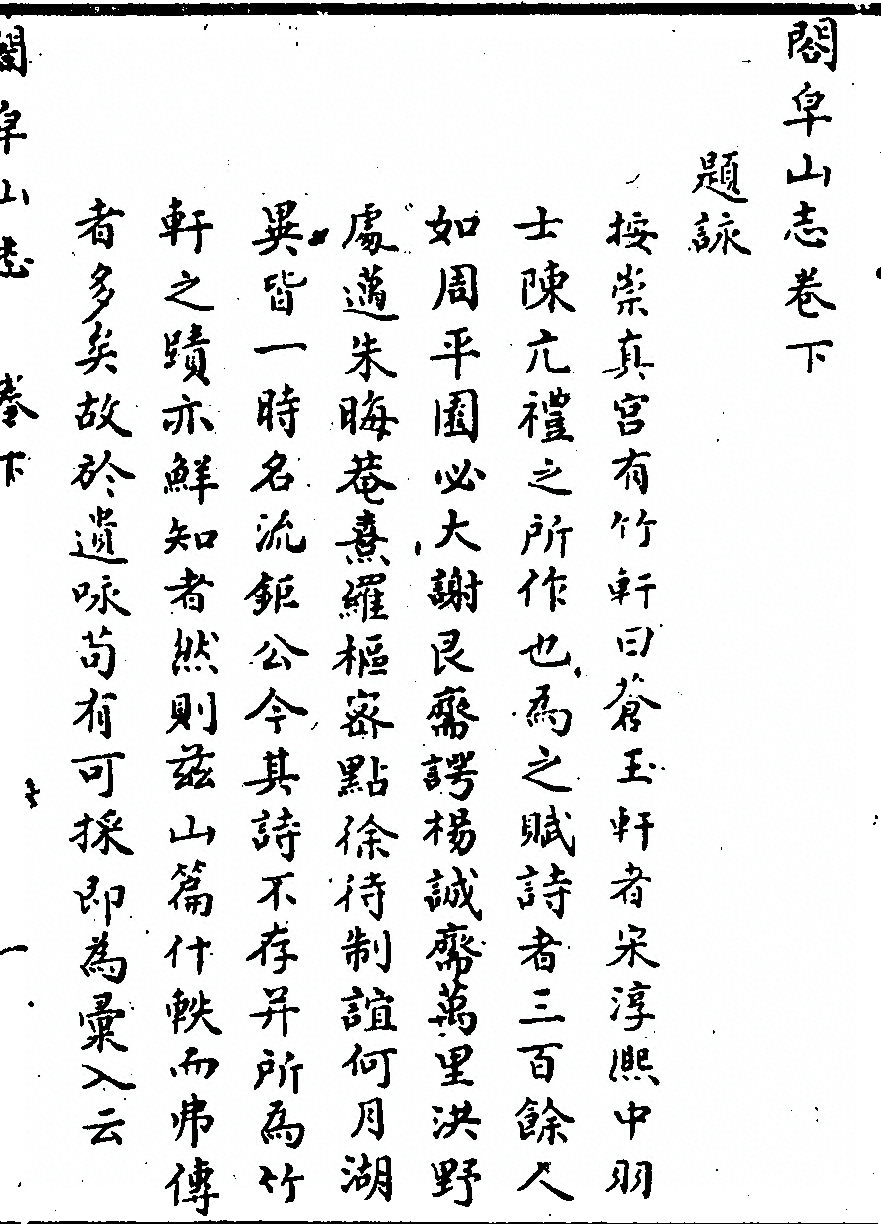 閤皁山志卷下
題詠
按崇真宮有竹軒曰蒼玉軒者宋淳熙中羽
士陳亢禮之所作也為之賦詩者三百餘人
如周平園必大謝艮齋諤楊誠齋萬里洪野
處邁朱晦菴熹羅樞密點徐待制誼何月湖
異皆一時名流鉅公今其詩不存并所為竹
軒之蹟亦鮮知者然則茲山篇什軼而弗傳
者多矣故於遺咏苟有可採即為彙入云
閤皁山志 卷下 一